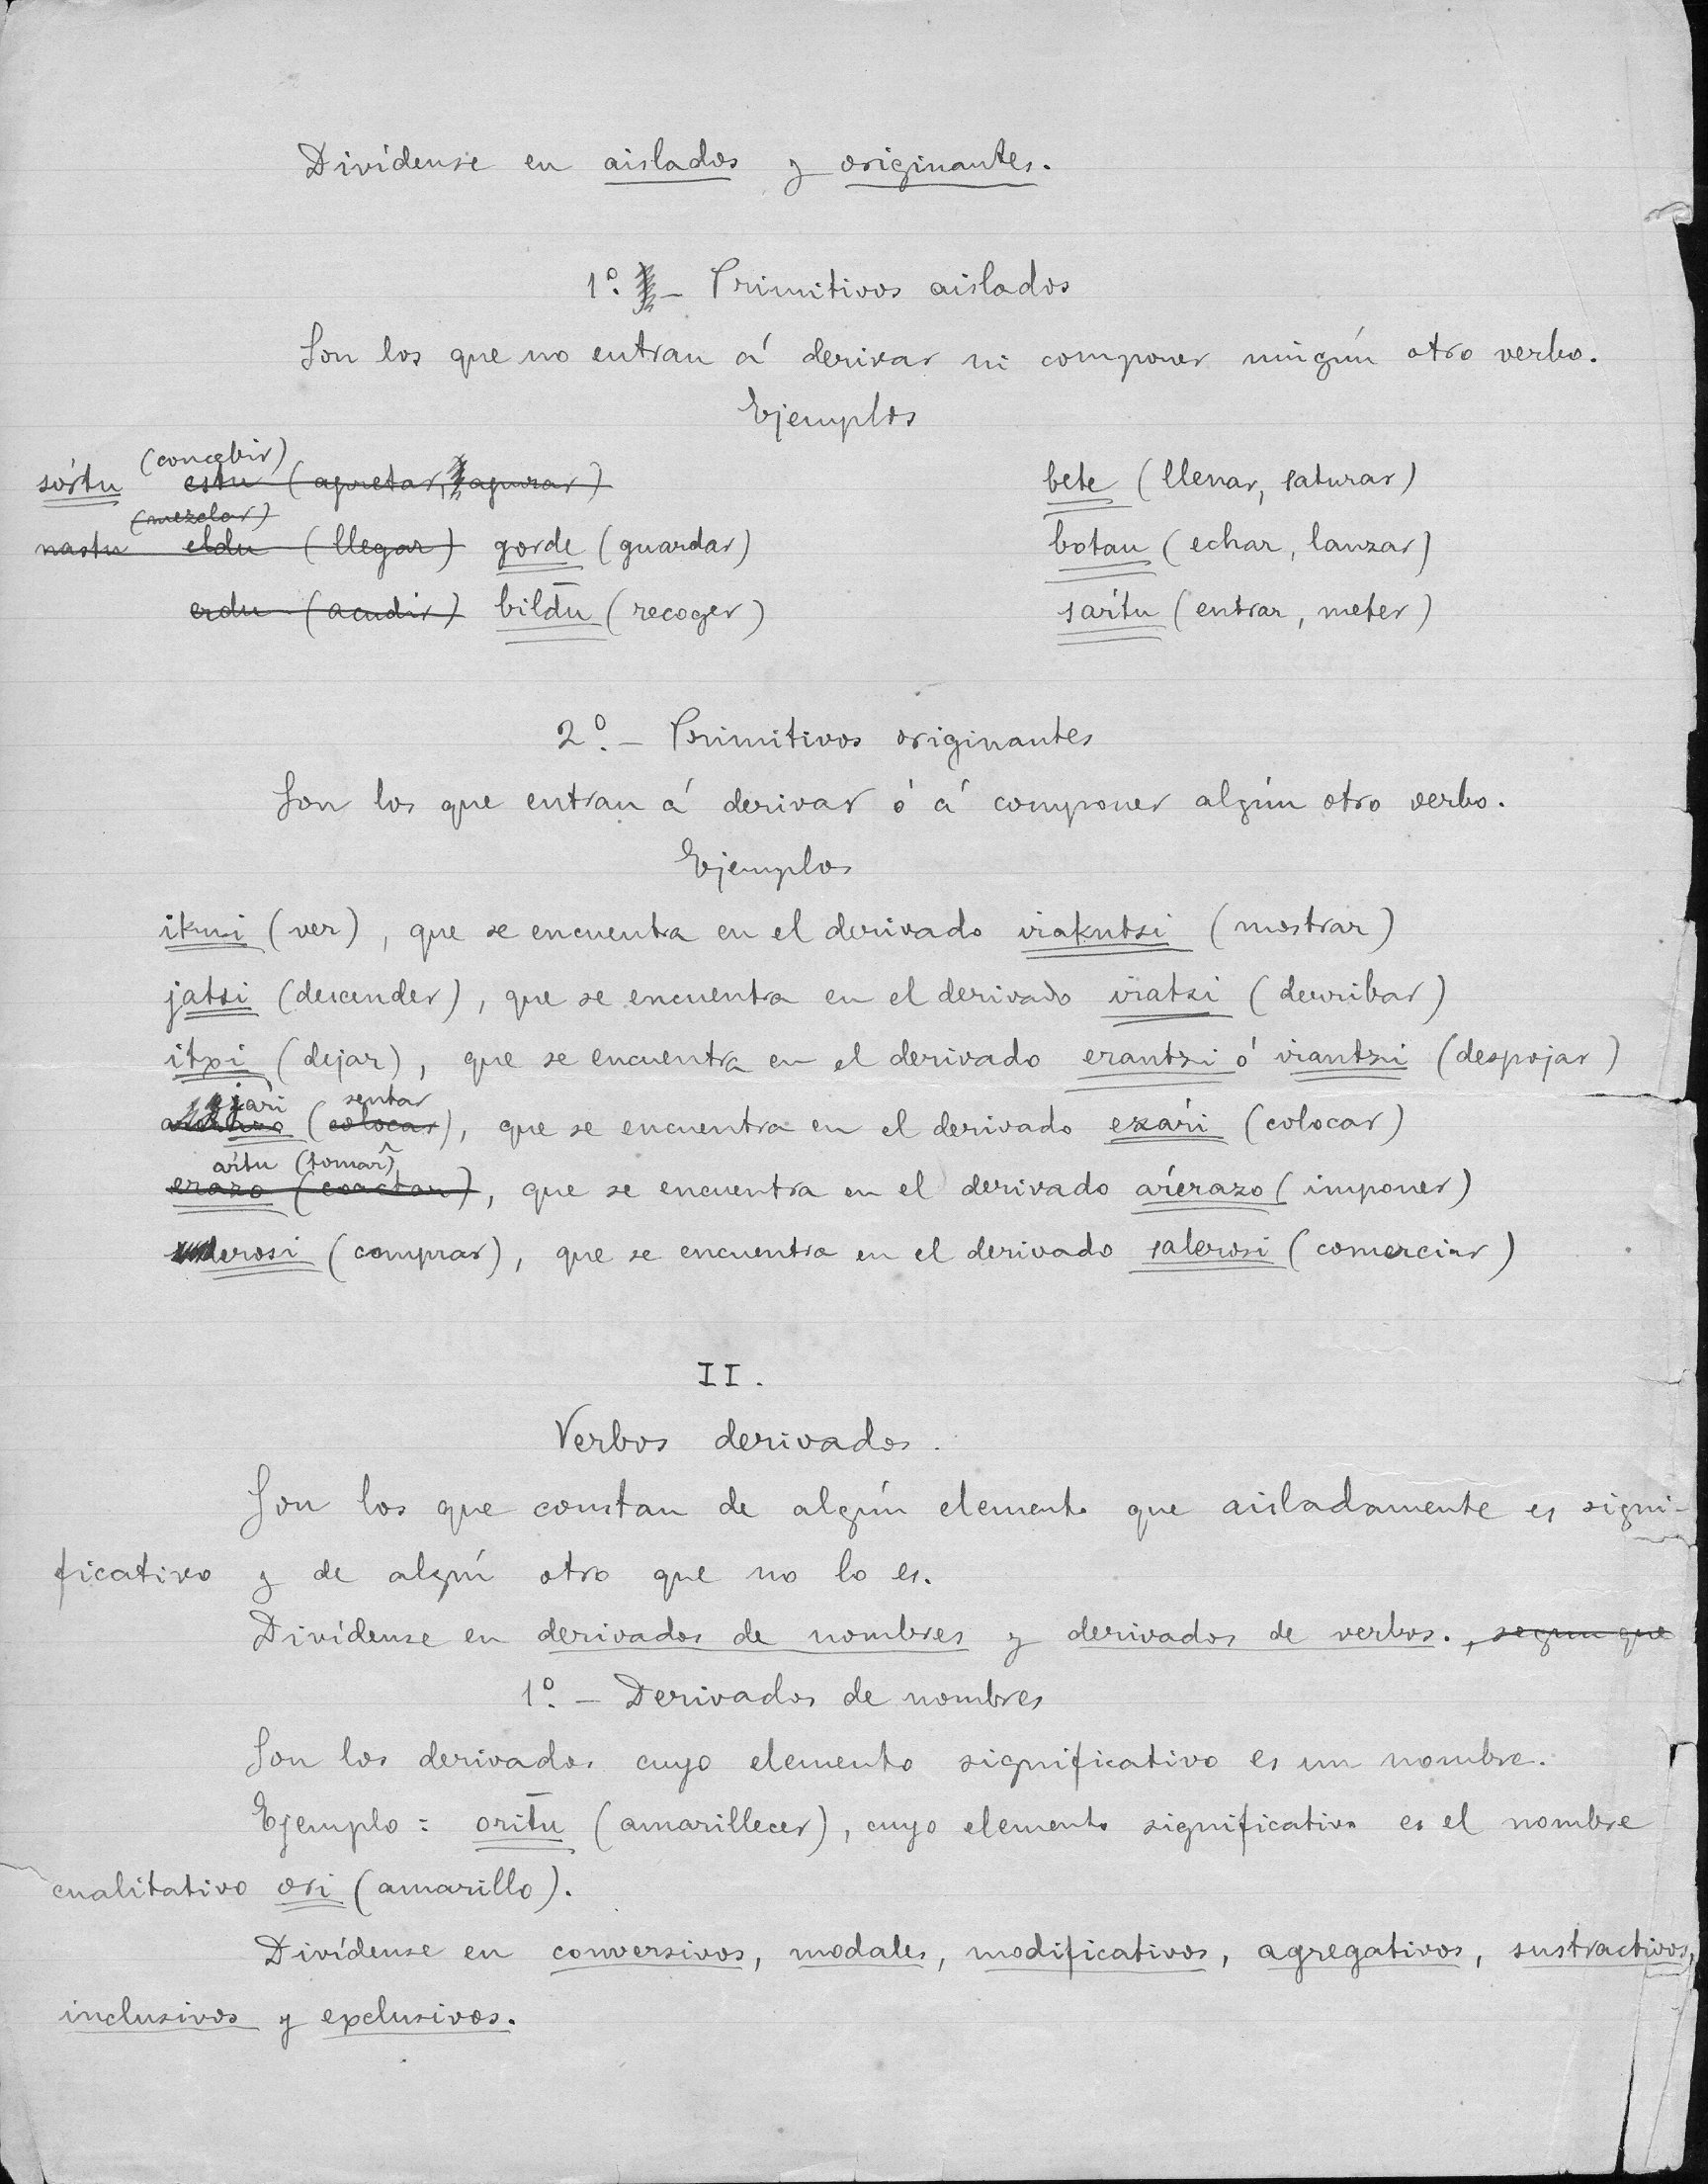 Divídense en aislados y originantes.
1º. — Primitivos aislados
Son los que no entran á derivar ni componer ningún otro verbo.
Ejemplos
(concebir)
sórtu estu (apretar, apurar) bete (llenar, saturar)
(mezclar)
nastu eldu (llegar) gorde (guardar) botan (echar, lanzar)
erdu (acudir) bildū (recoger) sartu (entrar, meter)
2º. — Primitivos originantes
Son los que entran á derivar ó á componer algún otro verbo.
Ejemplos
ikusi (ver), que se encuentra en el derivado irakutsi (mostrar)
jatsi (descender), que se encuentra en el derivado iratsi (derribar)
itxi (dejar), que se encuentra en el derivado erantzi ó irantzi (despojar)
jaŕi sentar
(colocar), que se encuentra en el derivado ezaŕi (colocar)
aŕtu (tomar)
erazo (coactar), que se encuentra en el derivado aŕerazo (imponer)
erosi (comprar), que se encuentra en el derivado salerosi (comerciar)
II.
Verbos derivados.
Son los que constan de algún elemento que aisladamente es signi-
ficativo y de algún otro que no lo es.
Divídense en derivados de nombres y derivados de verbos. , segun que
1º. — Derivados de nombres
Son los derivados cuyo elemento significativo es un nombre.
Ejemplo: oritū (amarillecer), cuyo elemento significativo es el nombre
cualitativo ori (amarillo).
Divídense en conversivos, modales, modificativos, agregativos, sustractivos,
inclusivos y exclusivos.